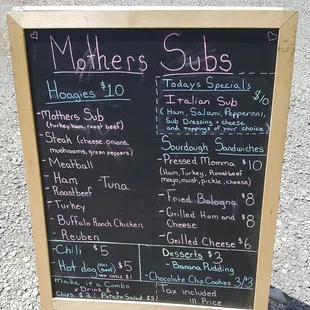 Mothers Subs
Hoagies $10
-Mothers Sub
(turkey, ham, roast beef)
-Steak (cheese, onions,
mushrooms, green peppers)
-Meatball
-Ham
Tuna
-Roastbeef
-Turkey
-Buffalo Ranch Chicken
-Reuben
-Chili $5
-Hot dog $5
Make it a Combo
Drink &
Chips $3 Potato Salad $3
Todays Special's
Italian Sub $10
(Ham, Salami, Pepperoni,
Sub Dressing + cheese
and toppings of your choice)
Sourdough Sandwiches
-Pressed Momma $10
(Ham, Turkey, Roastbeef
mayo, must, pickle, cheese)
-Fried Bologna $8
-Grilled Ham and $8
Cheese
-Grilled Cheese $6
Desserts $3
-Banana Pudding
-Chocolate Chip Cookies 3/$3
Tax included
in Price